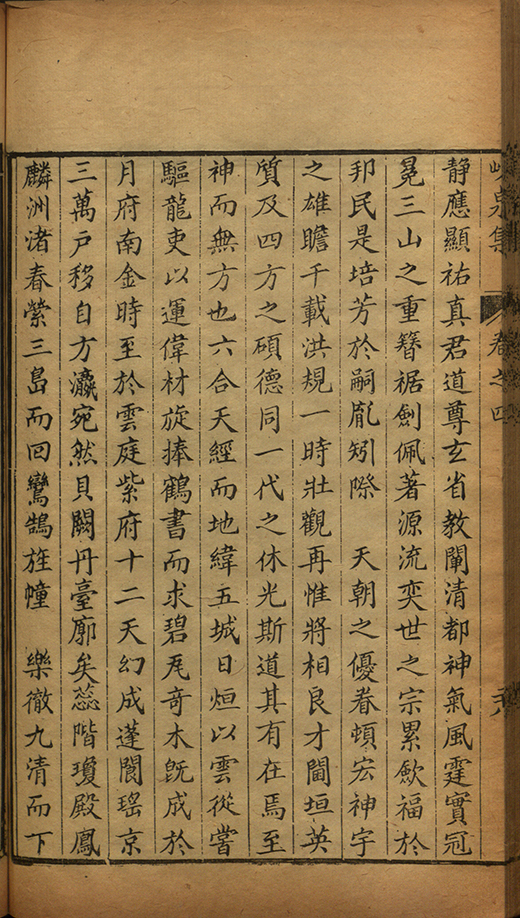 峴泉集 卷之四
靜應顯祐真君道尊玄省教闡清都神氣風霆實冠
冕三山之重簪裾劍佩著源流奕世之宗累歛福於
邦民是培芳於嗣胤矧際 天朝之優眷頓宏神宇
之雄瞻千載洪規一時壯觀再惟將相良才閫垣英
質及四方之碩德同一代之休光斯道其有在焉至
神而無方也六合天經而地緯五城日烜以雲從嘗
驅龍吏以運偉材旋捧鶴書而求碧瓦奇木旣成於
月府南金時至於雲庭紫府十二天幻成蓬閬瑤京
三萬戶移自方瀛宛然貝闕丹臺廓矣蕊階瓊殿鳳
麟洲渚春縈三島而回鸞鵠旌幢 樂徹九清而下